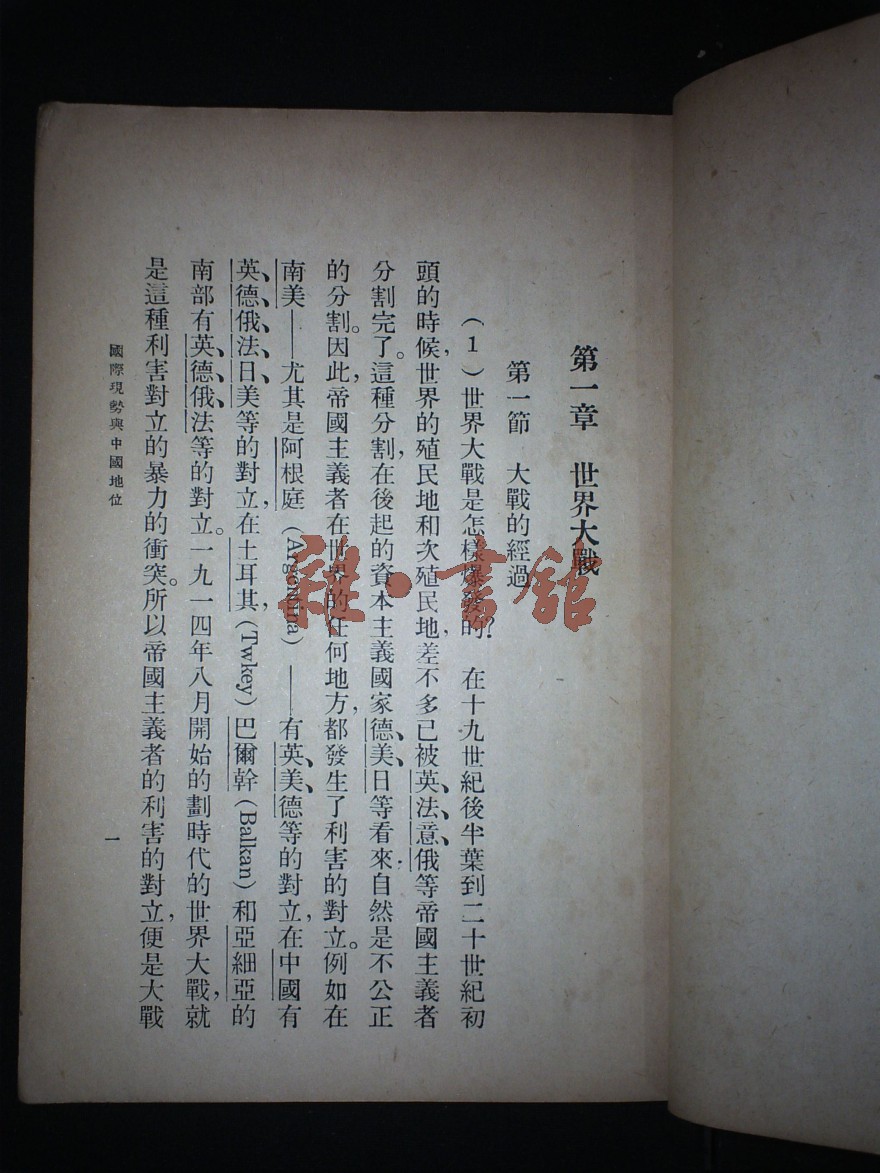 第一章　世界大戰
第一節　大戰的經過
（1）世界大戰是怎樣爆發的？　在十九世紀後半葉到二十世紀初
頭的時候，世界的殖民地和次殖民地，差不多已被英、法、意、俄等帝國主義者
分割完了。這種分割，在後起的資本主義國家德、美、日等看來自然是不公正
的分割。因此，帝國主義者在世界的任何地方，都發生了利害的對立。例如在
南美——尤其是阿根庭（Argentina）——有英、美、德等的對立，在中國有
英、德、俄、法、日、美等的對立，在土耳其，（Twkey）巴爾幹（Balkan）和亞細亞的
南部有英、德、俄、法等的對立。一九一四年八月開始的劃時代的世界大戰，就
是這種利害對立的暴力的衝突。所以帝國主義者的利害的對立，便是大戰
國際現勢與中國地位
一
雜·書館